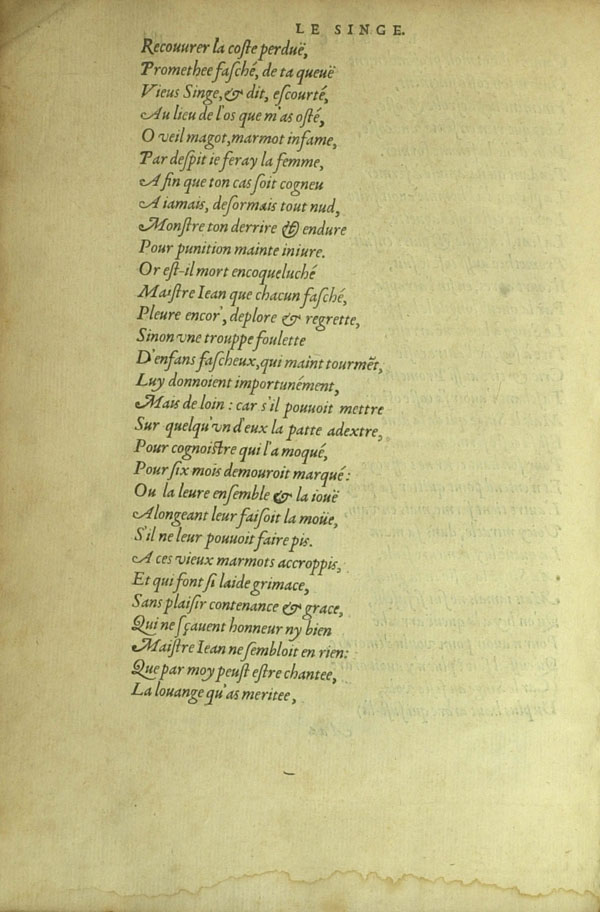 LE SINGE.
Recouurer la coſte perduë,
Promethee faſché, de ta queuë
Vieus Singe, & dit, eſcourté,
Au lieu de l'os que m'as oſté,
O veil magot, marmot infame,
Par deſpit ie feray la femme,
A fin que ton cas ſoit cogneu
A iamais, deſormais tout nud,
Monſtre ton derrire & endure
Pour punition mainte iniure.
Or eſt-il mort encoqueluché
Maiſtre Iean que chacun faſché,
Pleure encor', deplore & regrette,
Sinon vne trouppe foulette
D'enfans faſcheux, qui maint tourmẽt,
Luy donnoient importunément,
Mais de loin : car s'il pouuoit mettre
Sur quelqu'vn d'eux la patte adextre,
Pour cognoiſtre qui l'a moqué,
Pour ſix mois demouroit marqué :
Ou la leure enſemble & la iouë
Alongeant leur faiſoit la moüe,
S'il ne leur pouuoit faire pis.
A ces vieux marmots accroppis,
Et qui font ſi laide grimace,
Sans plaiſir contenance & grace,
Qui ne ſçauent honneur ny bien
Maiſtre Iean ne ſembloit en rien:
Que par moy peuſt eſtre chantee,
La louange qu'as meritee,